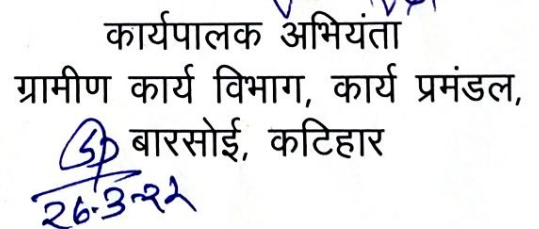 कार्यपालक अभियंता
ग्रामीण कार्य विभाग, कार्य प्रमंडल,
बारसोई, कटिहार
26-3-22